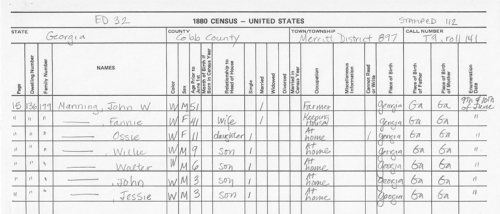 ED 32 1880 CENSUS – UNITED STATES STAMPED 112
STATE COUNTY TOWN/TOWNSHIP CALL NUMBER
Georgia Cobb County Merritt District 897 T9, roll 141
Page Dwelling Number Family Number NAMES Color Sex Age Prior to June 1st Month of Birth if Born in Census Year Relationship to Head of House Single Married Widowed Divorced Married in Census Year Occupation Miscellaneous Information Cannot Read or Write Place of Birth Place of Birth of Father Place of Birth of Mother Enumeration Date
15 136 179 Manning, John W W M 51 / Farmer Georgia Ga Ga of June
" " " — Fannie W F 41 Wife / Keeping House Georgia Ga Ga "
" " " — Ossie W F 11 daughter / At home / Georgia Ga Ga "
" " " — Willie W M 9 Son / At home Georgia Ga Ga "
" " " — Walter W M 6 Son / At home Georgia Ga Ga "
" " " — , John W M 3 Son / At home Georgia Ga Ga "
" " " — , Jessie W M 3 Son / At home Georgia Ga Ga "